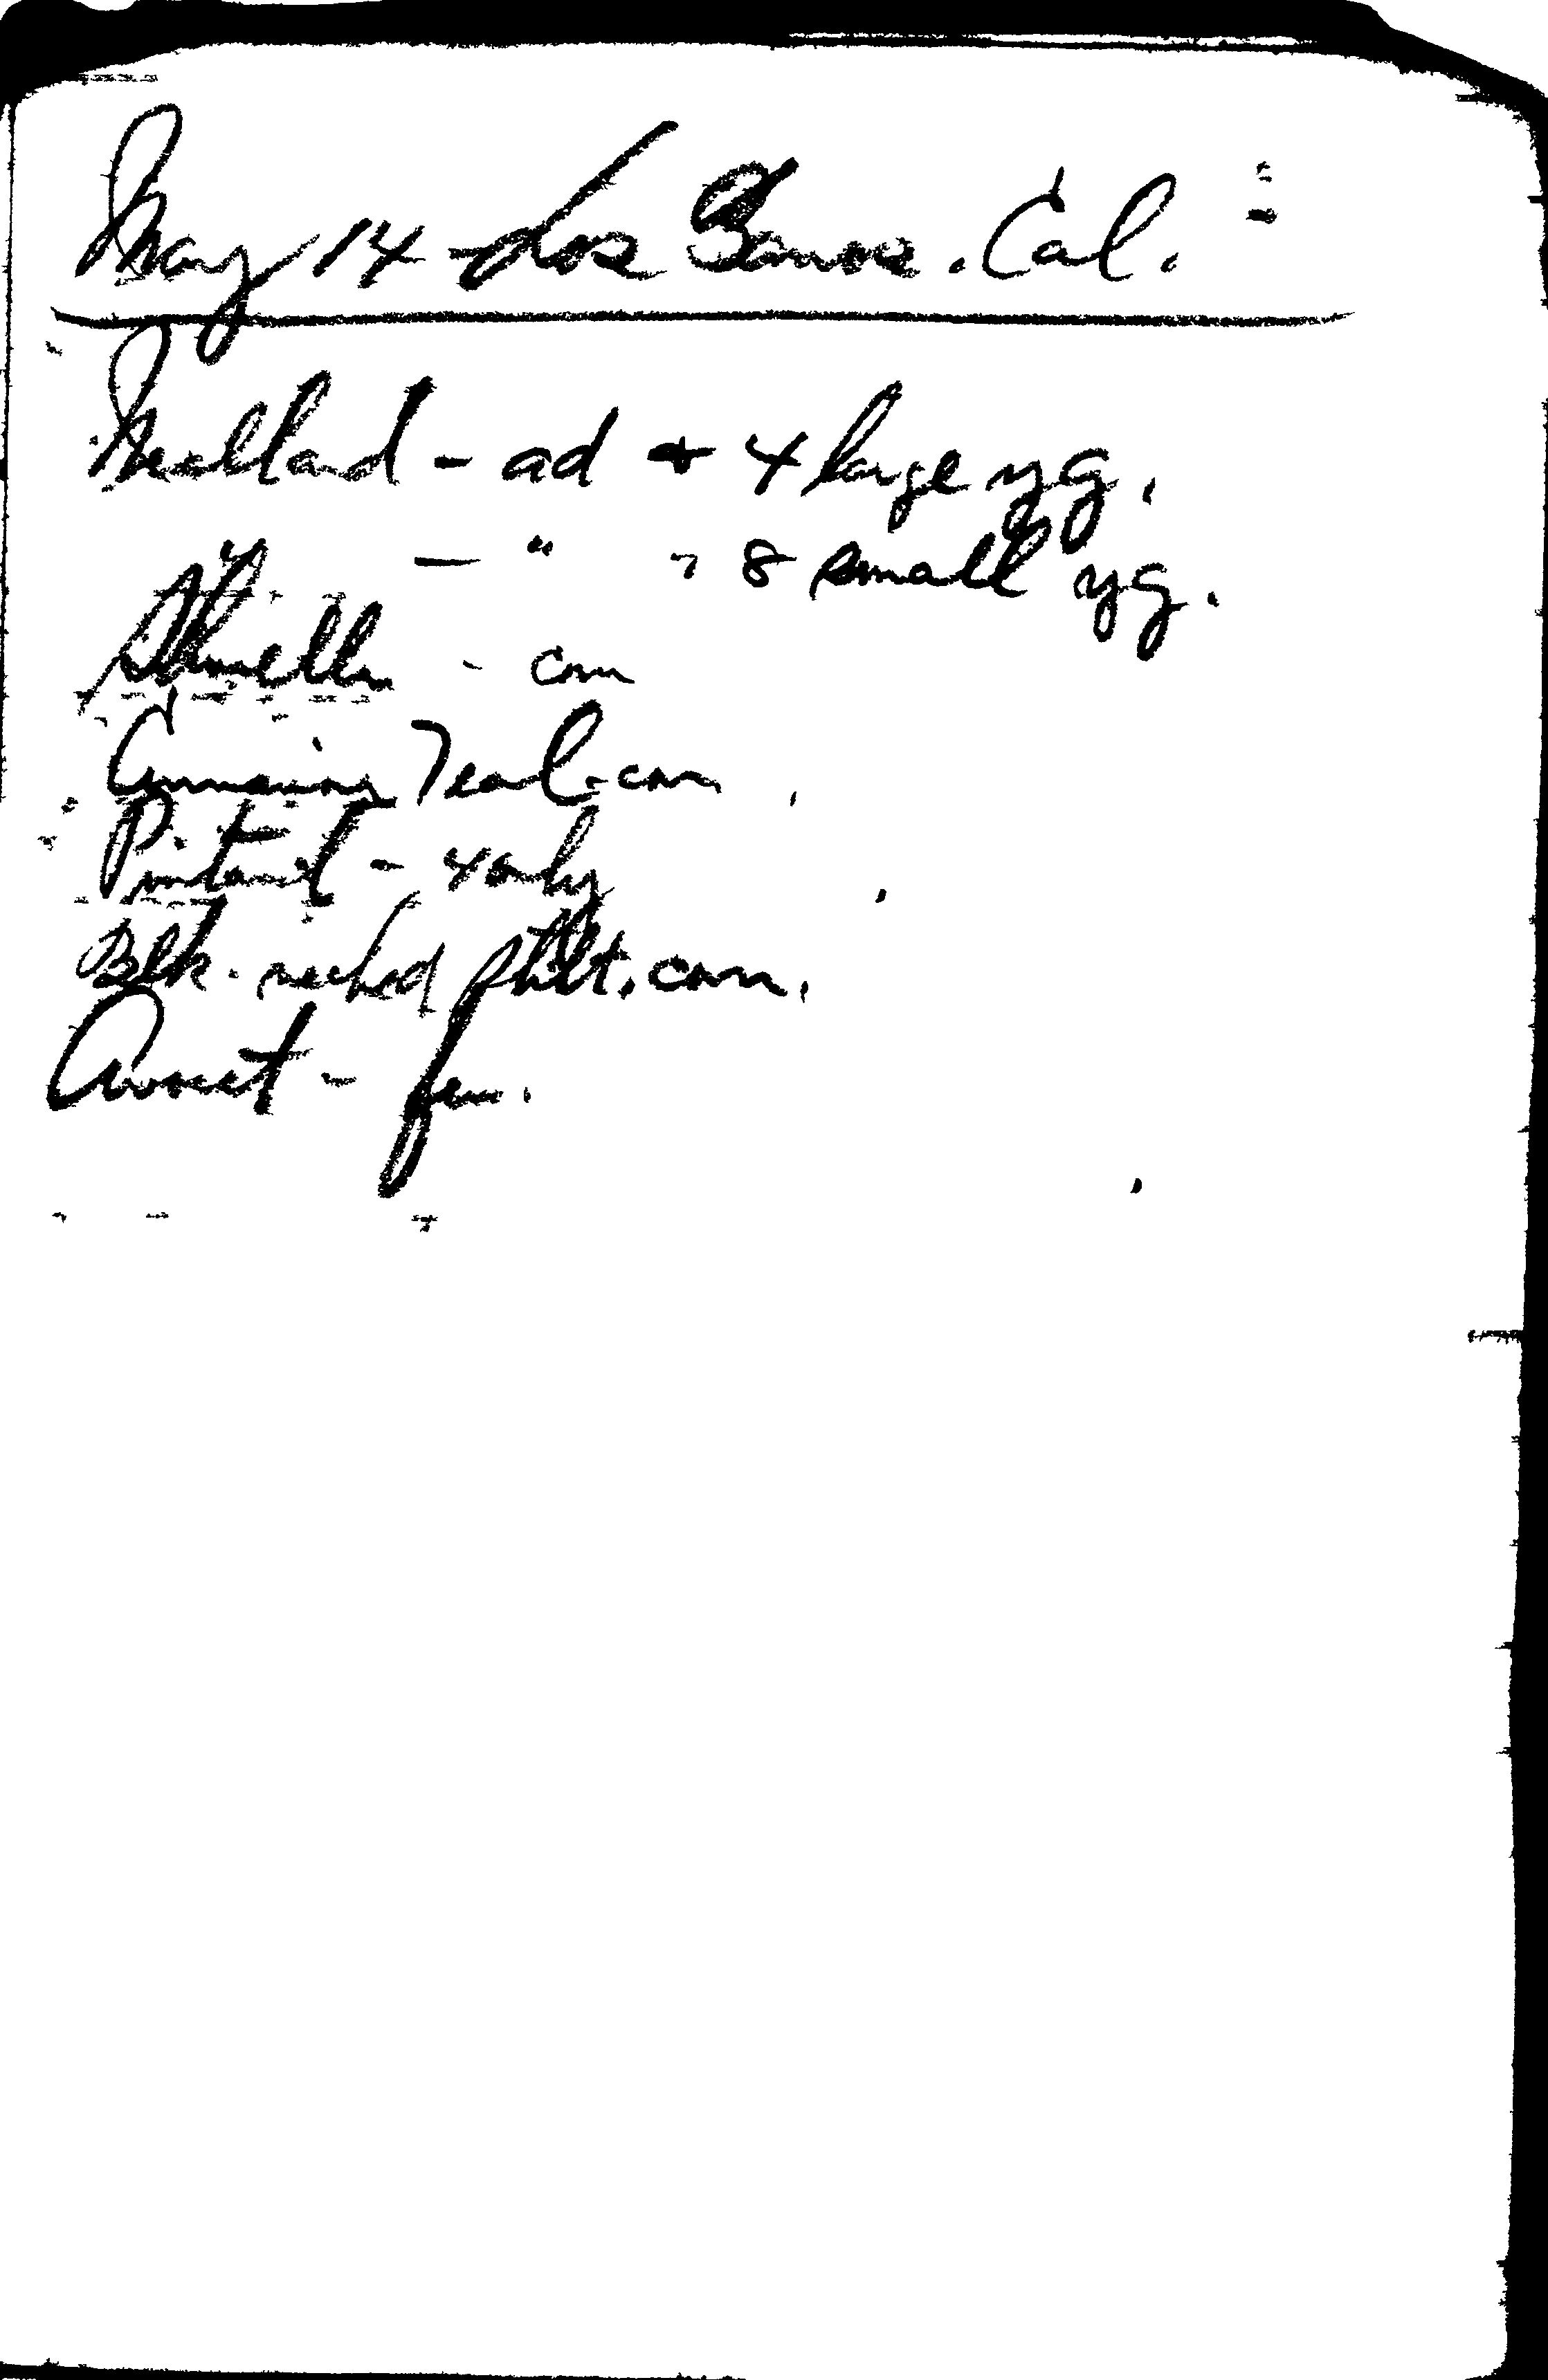 May 14 - Los Banos. Cal.
Mallard - ad + 4 large yg.
" - " " 8 small yg.
Shoveller - com
Cinnamon Teal - com
Pintail - 4 only
Blk. necked stilt. com.
Avocet - few.